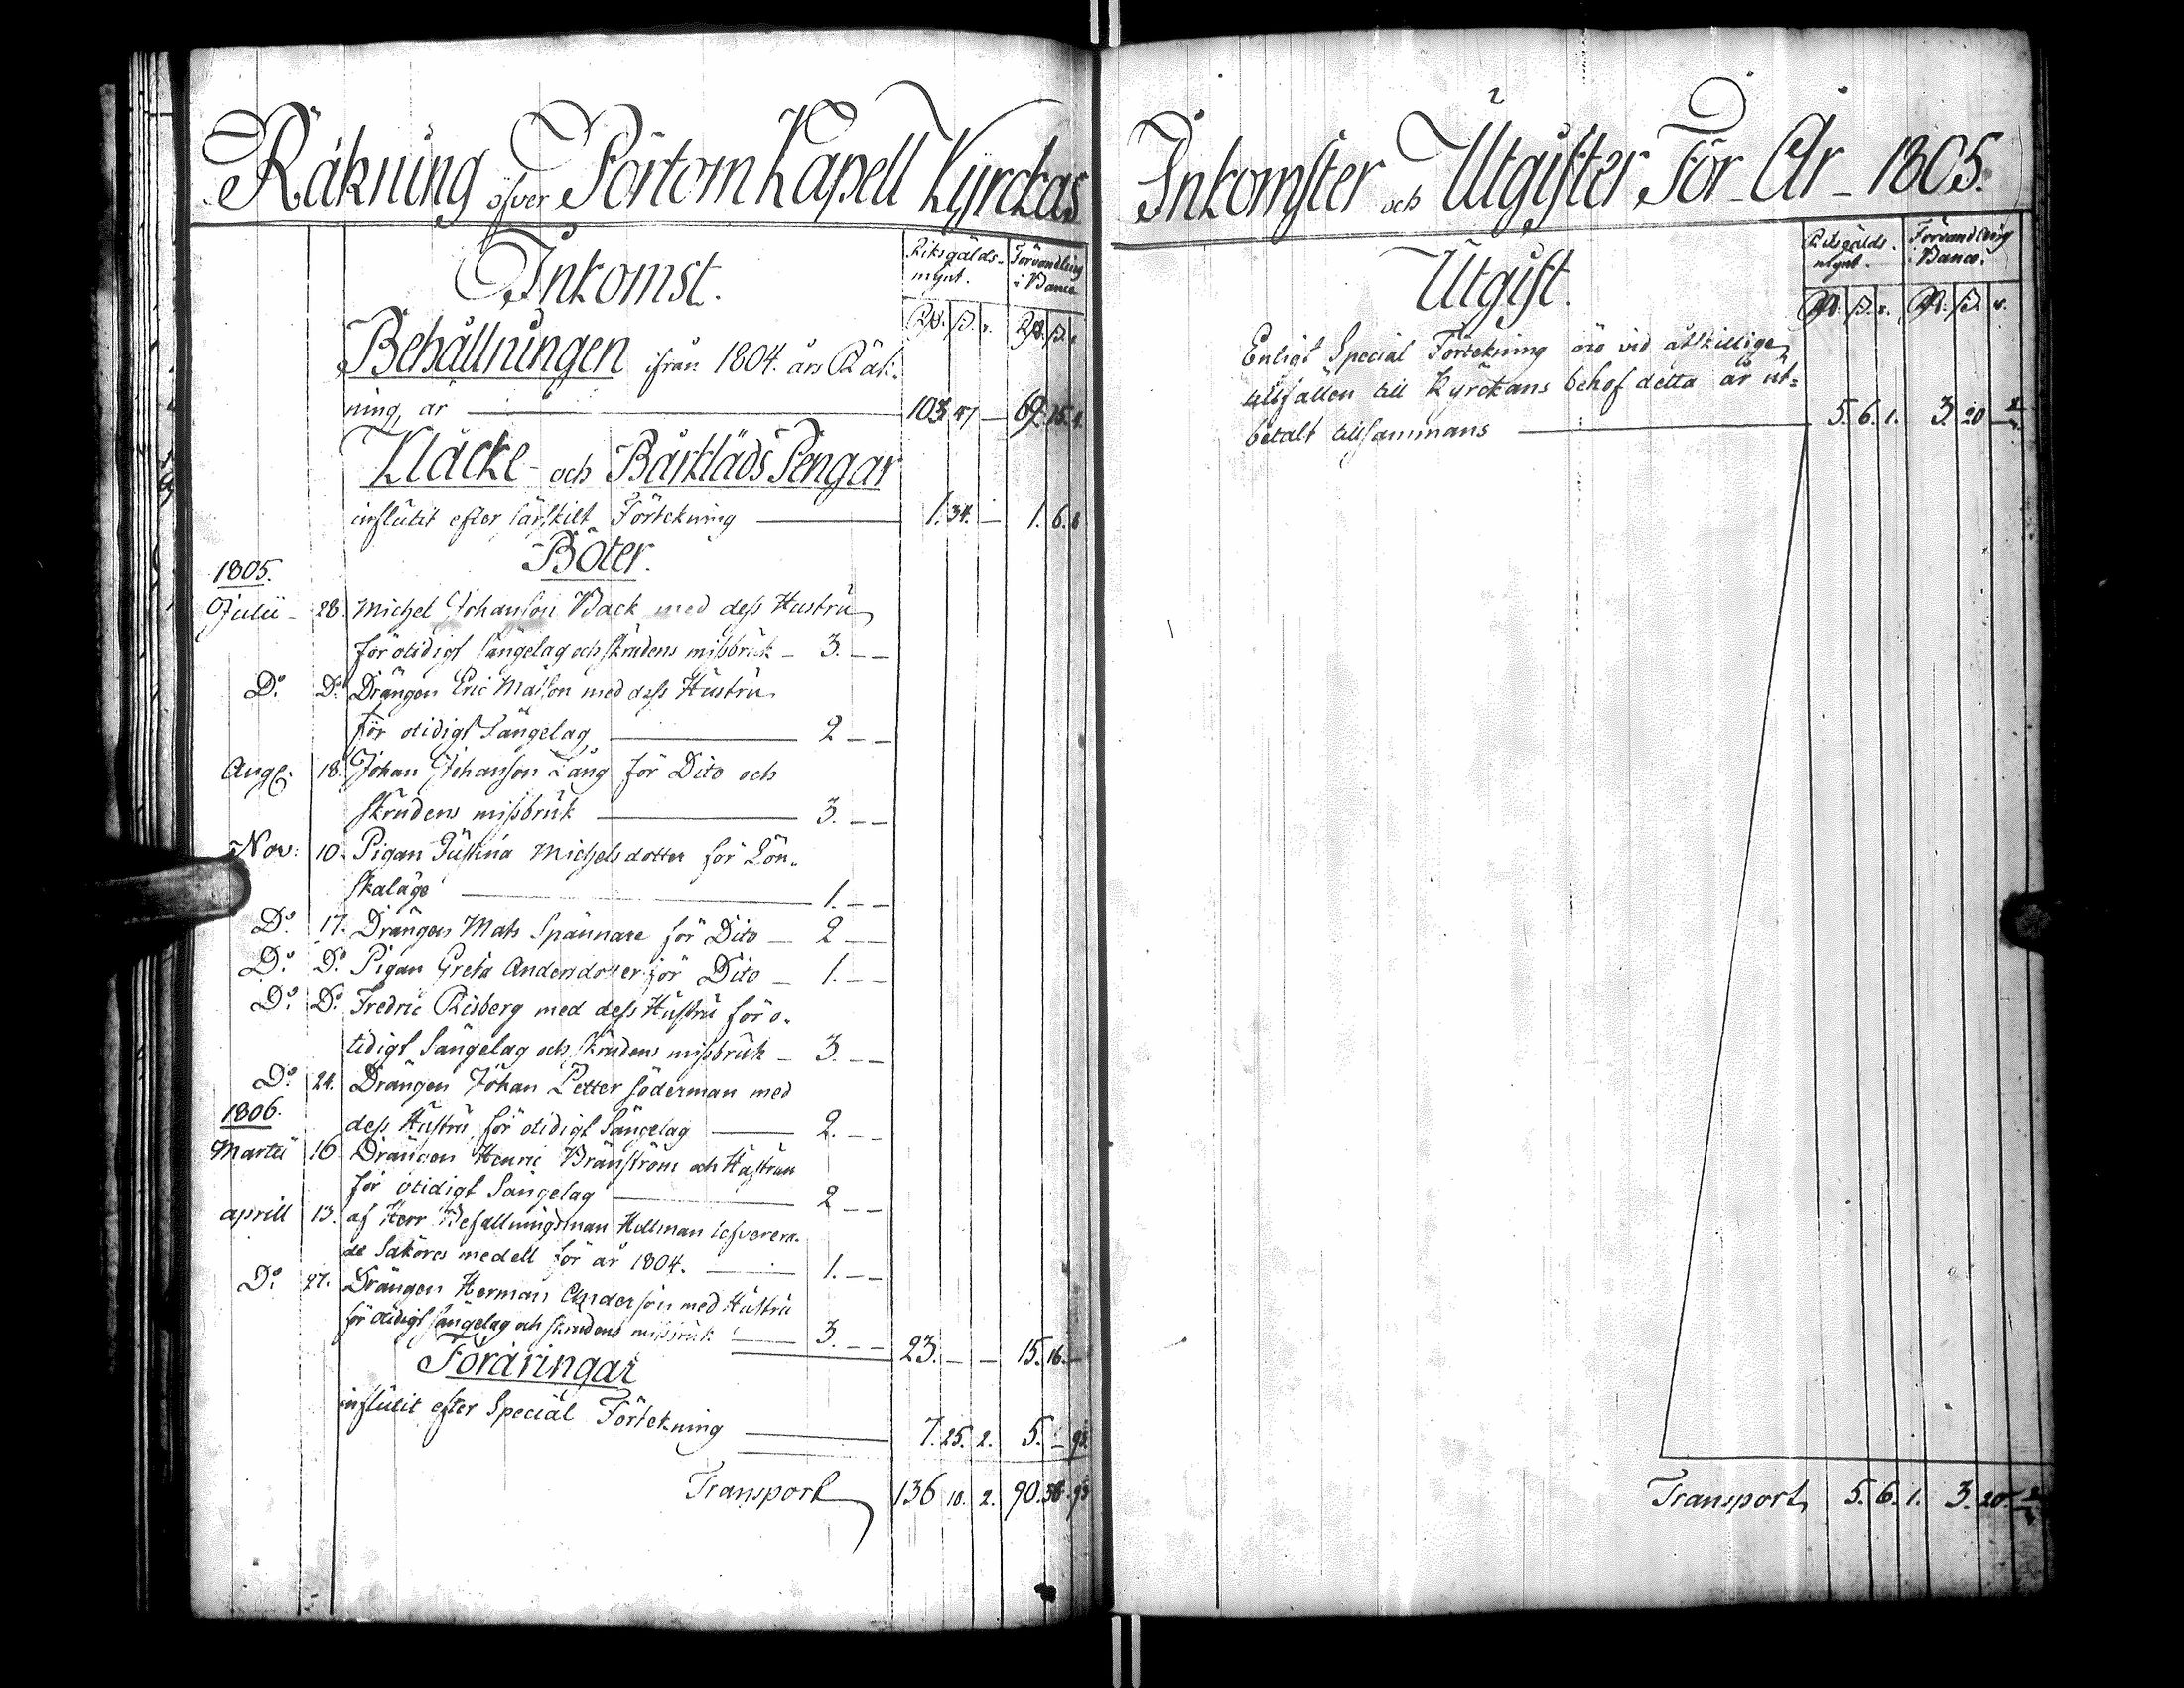 Räkning öfver Pörtom Kapell Kyrckas
Inkomst.
Riksgälds-
mynt.
Förvandling
i Banco
Rd. ß. r. Rd. ß. r.
Behållningen ifrån 1804. års Räk-
ning är 103. 47 — 69. 15. 4.
Kläcke- och Bårkläds Pengar
influtit efter särskilt Förtekning 1. 34. — 1. 6. 8
Böter.
1805.
Julii - 28. Michel Johanson Back med dess Hustru
för otidigt Sängelag och skrudens missbruk - 3. — —
Do. Do. Drängen Eric Matson med dess Hustru
för otidigt Sängelag 2 — —
Aug. 18. Johan Johanson Lång för Dito och
skrudens missbruk 3. — —
Nov: 10. Pigan Justina Michelsdotter för Lön-
skaläge 1. — —
Do. 17. Drängen Mats Spännare för Dito — 2 — —
Do. Do. Pigan Greta Andersdotter för Dito — 1. — —
Do. Do. Fredric Risberg med dess Hustru för o-
tidigt Sängelag och skrudens missbruk — 3. — —
Do. 24. Drängen Johan Petter Söderman med
dess Hustru för otidigt Sängelag 2. — —
1806.
Martii 16 Drängen Henric Bränström och Hustrun
för otidigt Sängelag 2 — —
aprill 13. af Herr Befallningsman Hellman lefverera-
de Saköres medell för år 1804. 1. — —
Do. 27. Drängen Herman Anderson med Hustru
för otidigt Sängelag och skrudens missbruk 3. — — 23. — — 15. 16. —
Föräringar
influtit efter Special Förtekning 7. 25. 2. 5.
Transport 136 10. 2. 90.
Inkomster och Utgifter För År - 1805.
Utgift.
Riksgälds-
mynt.
Förvandling
i Banco.
Rd. ß. r. Rd. ß. r.
Enligt Special Förtekning äro vid åtskillige
tillfällen till Kyrckans behof detta år ut-
betalt tillsammans 5. 6. 1. 3. 20
Transport 5. 6. 1. 3. 20.